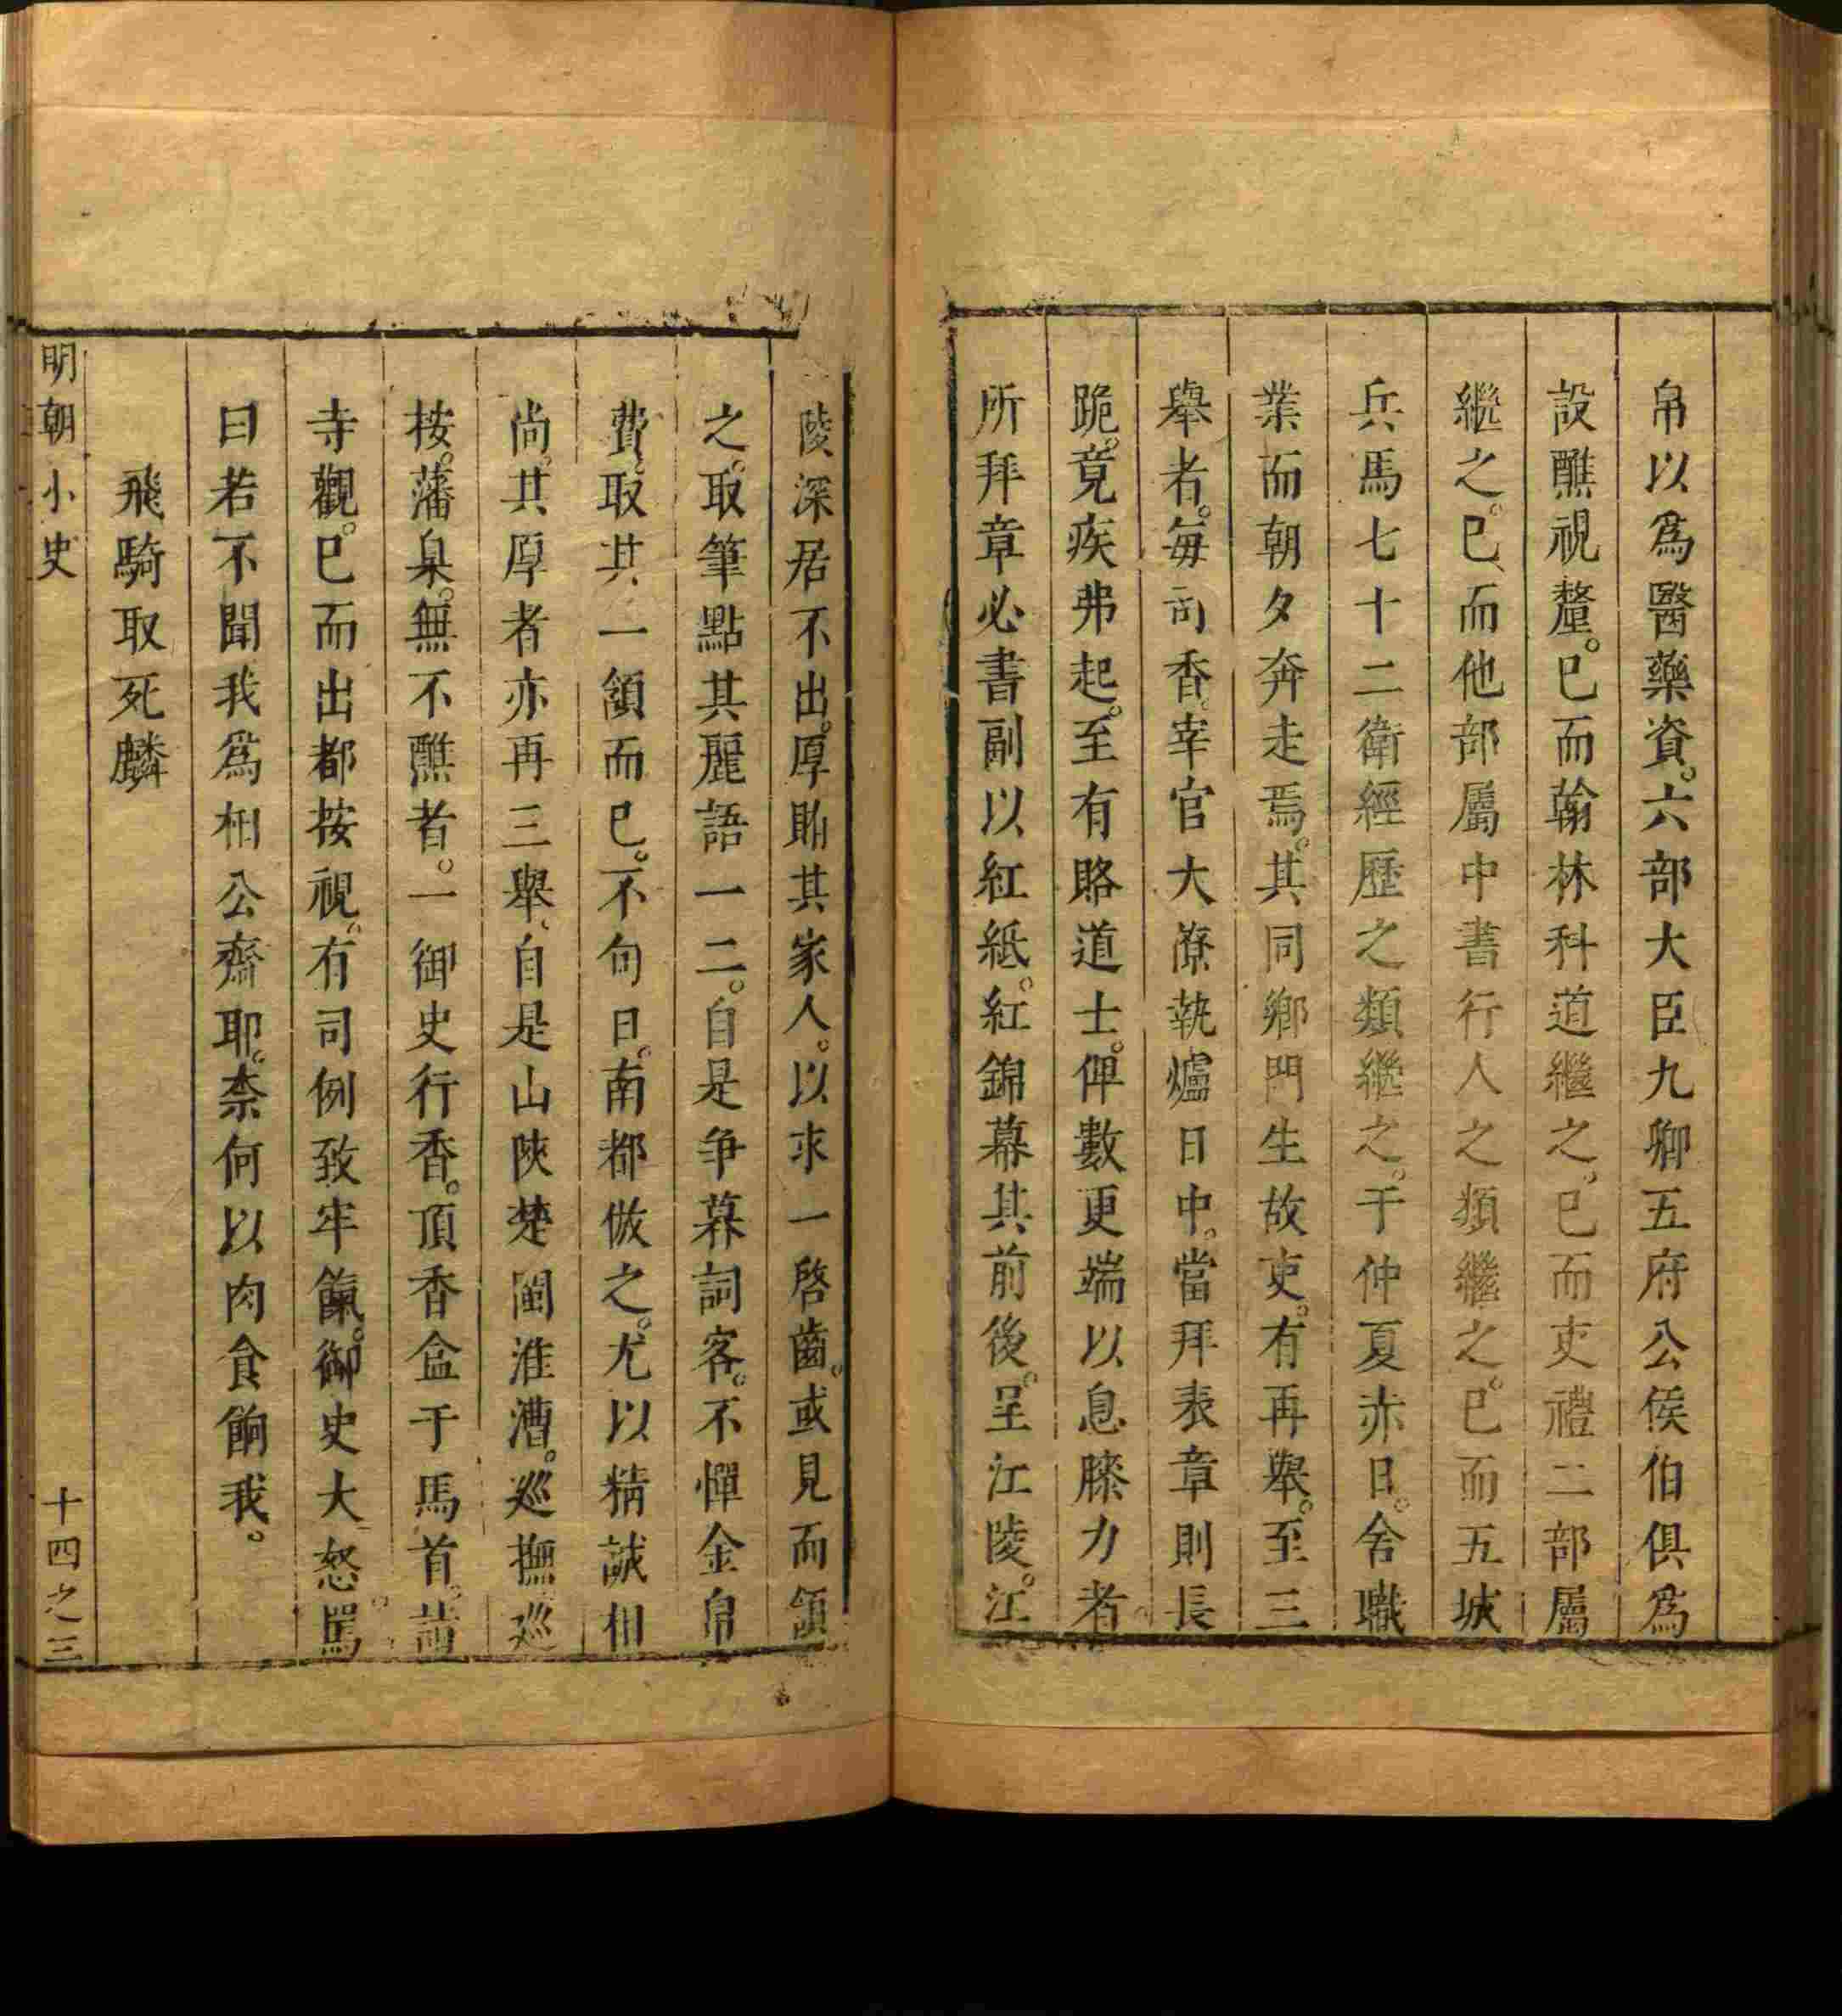 帛以爲醫藥資。六部大臣九卿五府公侯伯俱爲
設醮視釐。已而翰林科道繼之。已而吏禮二部屬
繼之。已而他部屬中書行人之類繼之。已而五城
兵馬七十二衛經歷之類繼之。于仲夏赤日。舍職
業而朝夕奔走焉。其同鄉門生故吏。有再舉。至三
舉者。每司香。宰官大僚執爐日中。當拜表章則長
跪。竟疾弗起。至有賂道士。俾數更端以息膝力者
所拜章必書副以紅紙。紅錦幕其前後。呈江陵。江
陵深居不出。厚賂其家人。以求一啓齒。或見而頷
之。取筆點其麗語一二。自是争募詞客。不憚金帛
費。取其一頷而已。不旬日。南都倣之。尤以精誠相
尚。其厚者亦再三舉。自是山陝楚閩淮漕。巡撫巡
按。藩臬。無不醮者。一御史行香。頂香盒于馬首。詣
寺觀。已而出都按視。有司例致牢餼。御史大怒。罵
曰若不聞我爲相公齋耶。柰何以肉食餉我。
飛騎取死麟
明朝小史
十四之三